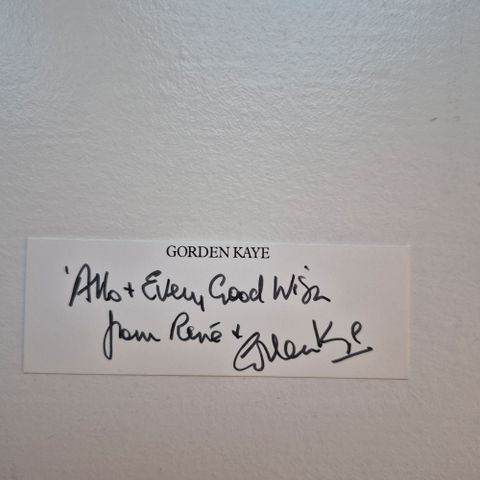 GORDEN KAYE
'Allo + Every Good Wish
from René +
Gorden Kaye